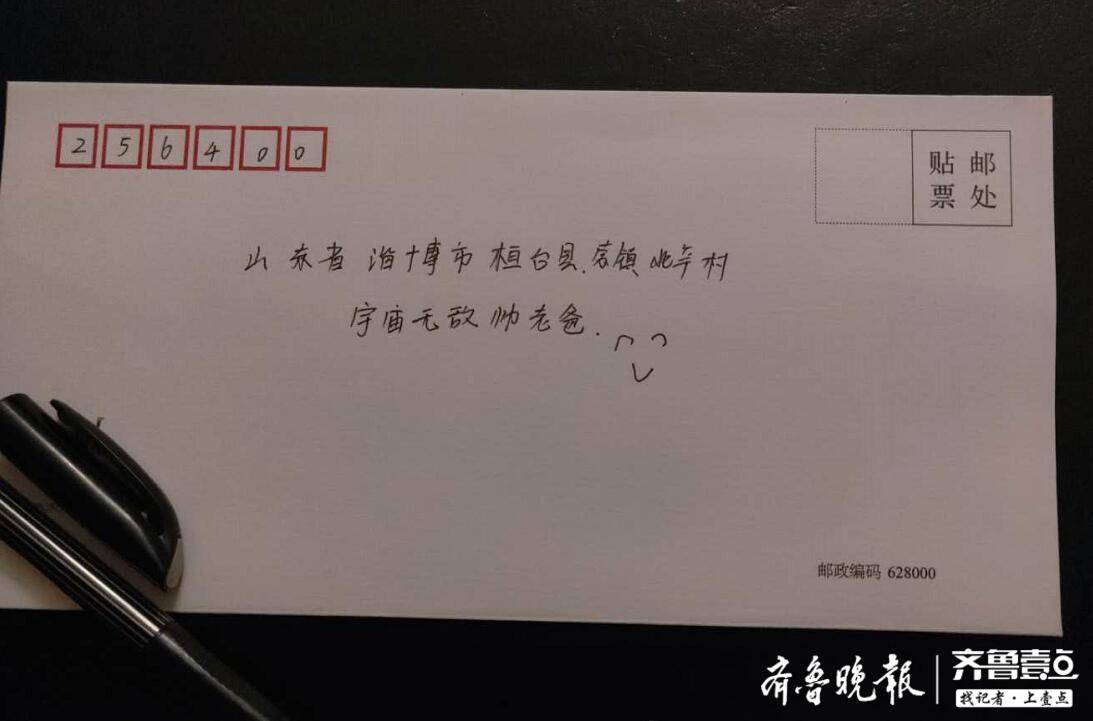 256400
贴邮
票处
山东省淄博市桓台县.索镇 村
宇宙无敌帅老爸.
邮政编码 628000
齐鲁晚报
齐鲁壹点
找记者·上壹点